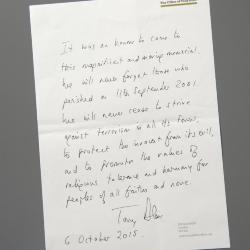 The Office of Tony Blair
It was an honour to come to
this magnificent and moving memorial.
We will never forget those who
perished on 11th September 2001.
We will never cease to strive
against terrorism in all its forms,
to protect the innocent from its evil,
and to promote the values of
religious tolerance and harmony for
peoples of all faiths and none.
Tony Blair
6 October 2015.